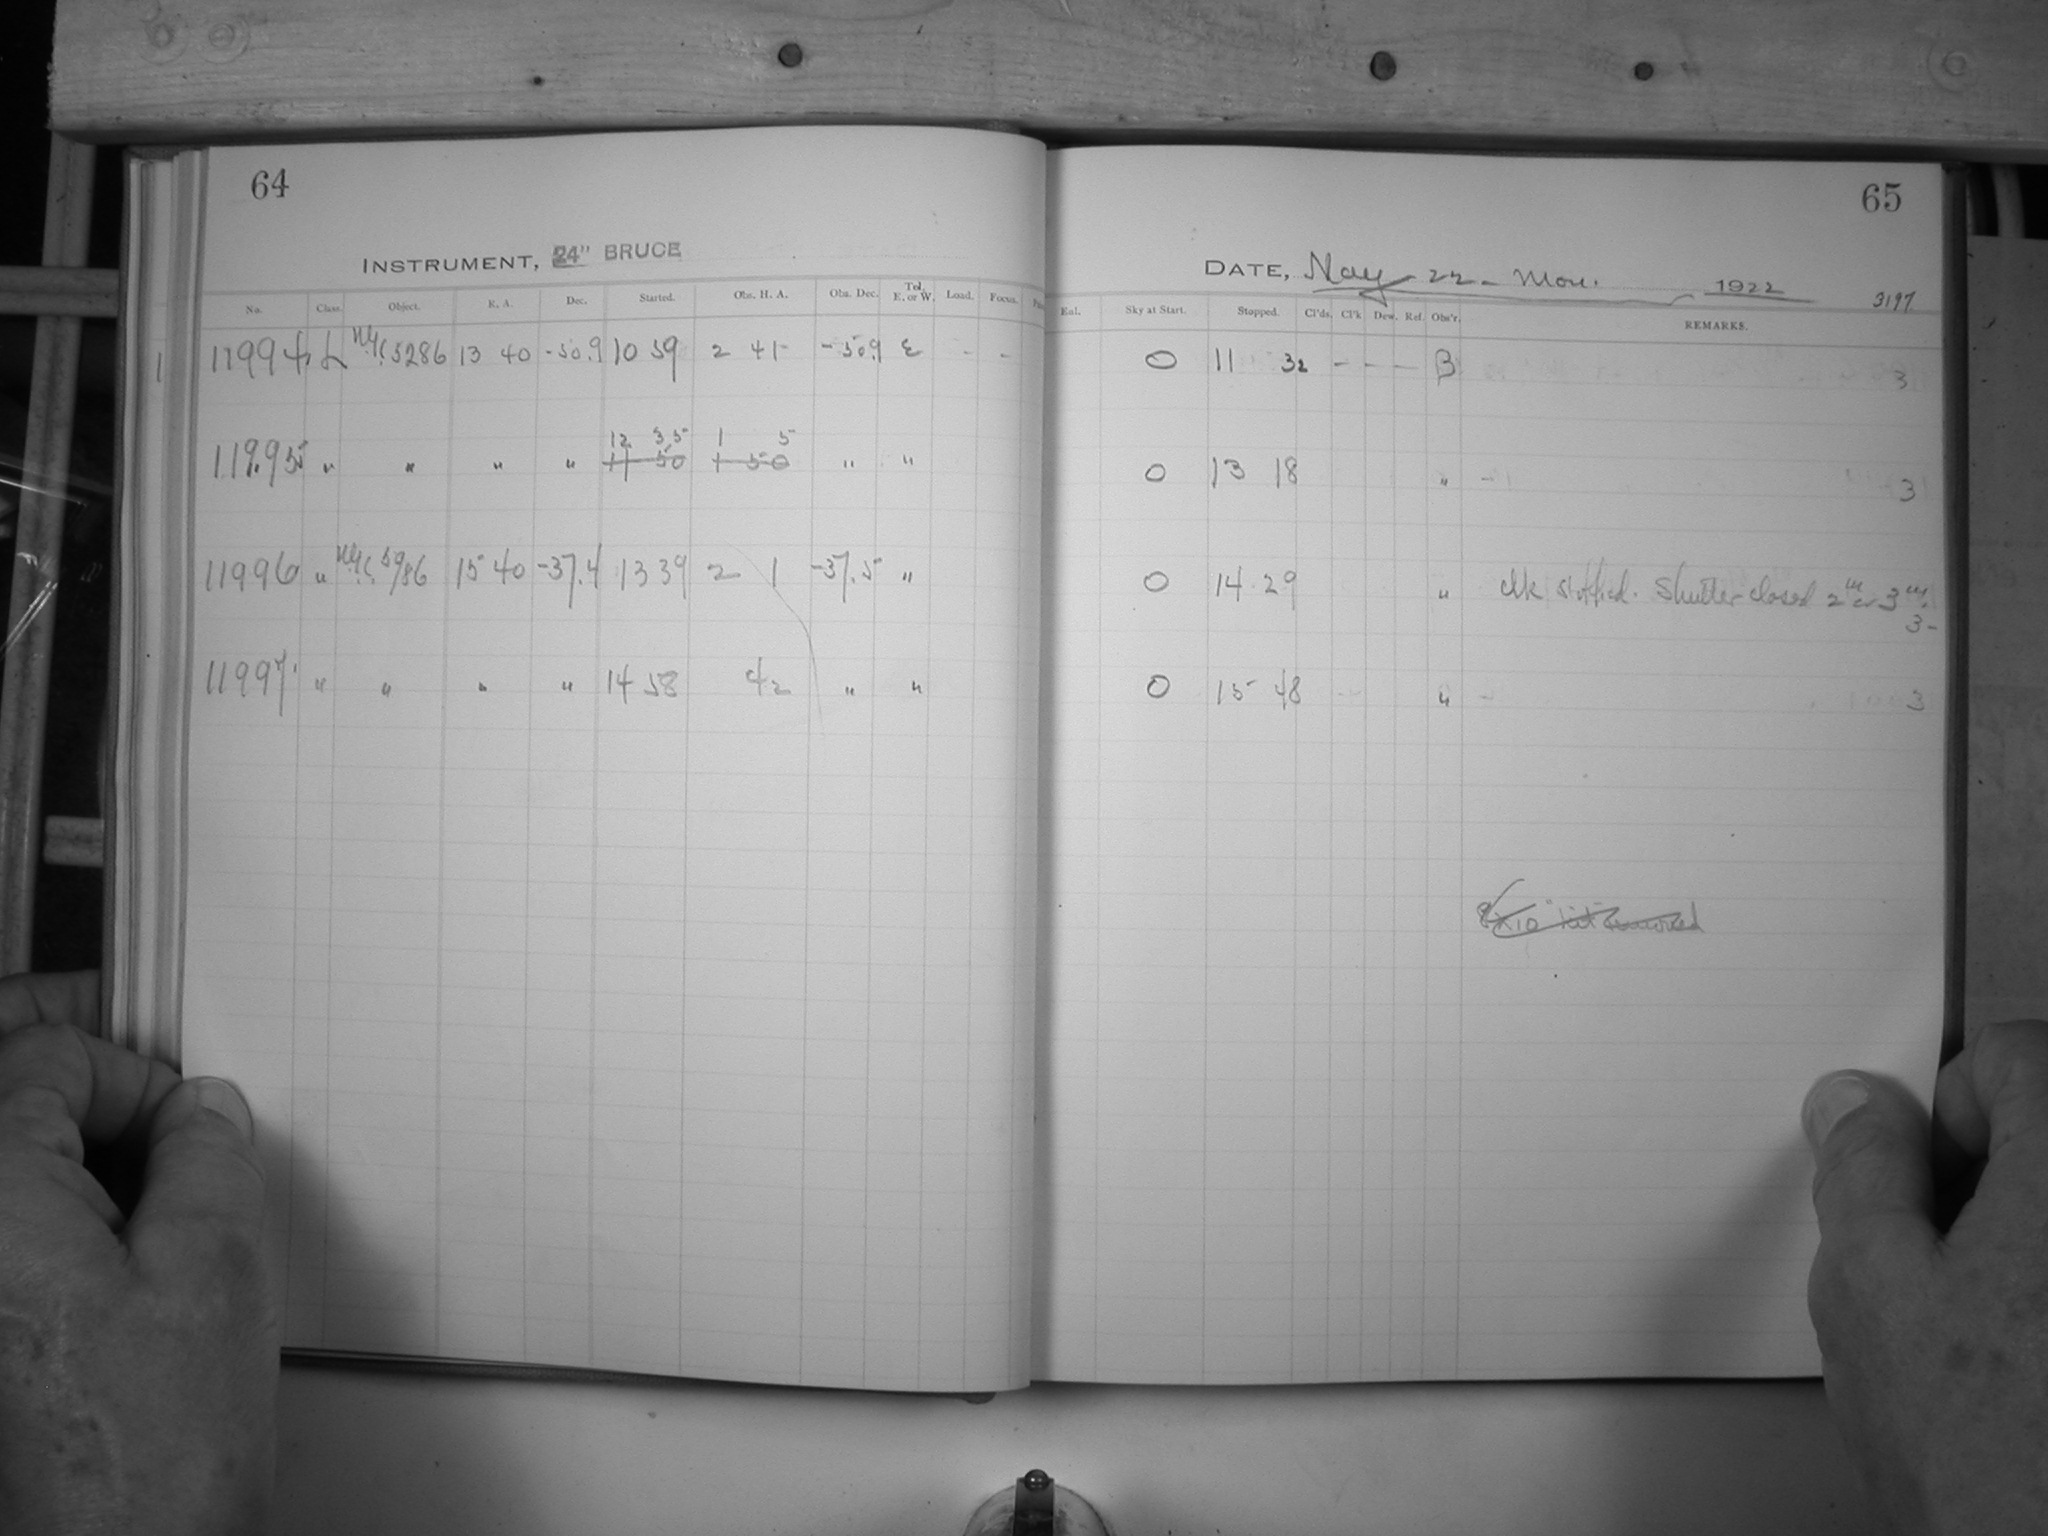 64
INSTRUMENT, 24" BRUCE
No. Class. Object. R. A. Dec. Started. Obs. H. A. Obs. Dec. Tel. E. or W. Load. Focus.
11994 L N.G.C. 5286 13 40 -50.9 10 59 2 41 -50.9 E - -
12 35 1 5
11995 " " " " 11 50 1 50 " "
11996 " N.G.C. 5986 15 40 -37.4 13 39 2 1 -37.5 "
11997 " " " " 14 58 42 " "
65
DATE, May 22 - Mon. 1922
3197
Ex1. Sky at Start. Stopped. Cl'ds. Cl'k Dew. Ref. Obs'r. REMARKS.
0 11 32 - - - B 3
0 13 18 " - 3
0 14 29 " clk stopped. Shutter closed 2m or 3m.
3-
0 15 48 " - 3
8x10 kit removed